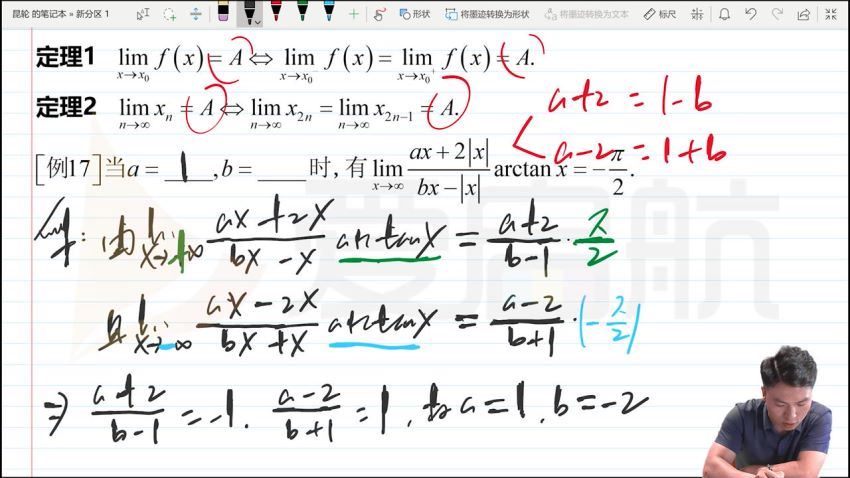 昆轮 的笔记本 » 新分区 1
形状 将墨迹转换为形状 将墨迹转换为文本 标尺
定理1 lim_{x→x₀} f(x) = A ⇔ lim_{x→x₀⁻} f(x) = lim_{x→x₀⁺} f(x) = A.
定理2 lim_{n→∞} xₙ = A ⇔ lim_{n→∞} x₂ₙ = lim_{n→∞} x₂ₙ₋₁ = A.
a+2 = 1-b
a-2 = 1+b
[例17]当a = 1, b = ____ 时, 有 lim_{x→∞} (ax+2|x|)/(bx-|x|) arctan x = -π/2.
解: 由 lim_{x→+∞} (ax+2x)/(bx-x) arctanx = (a+2)/(b-1) · π/2
且 lim_{x→-∞} (ax-2x)/(bx+x) arctanx = (a-2)/(b+1) · (-π/2)
⇒ (a+2)/(b-1) = -1, (a-2)/(b+1) = 1, 故 a=1, b=-2